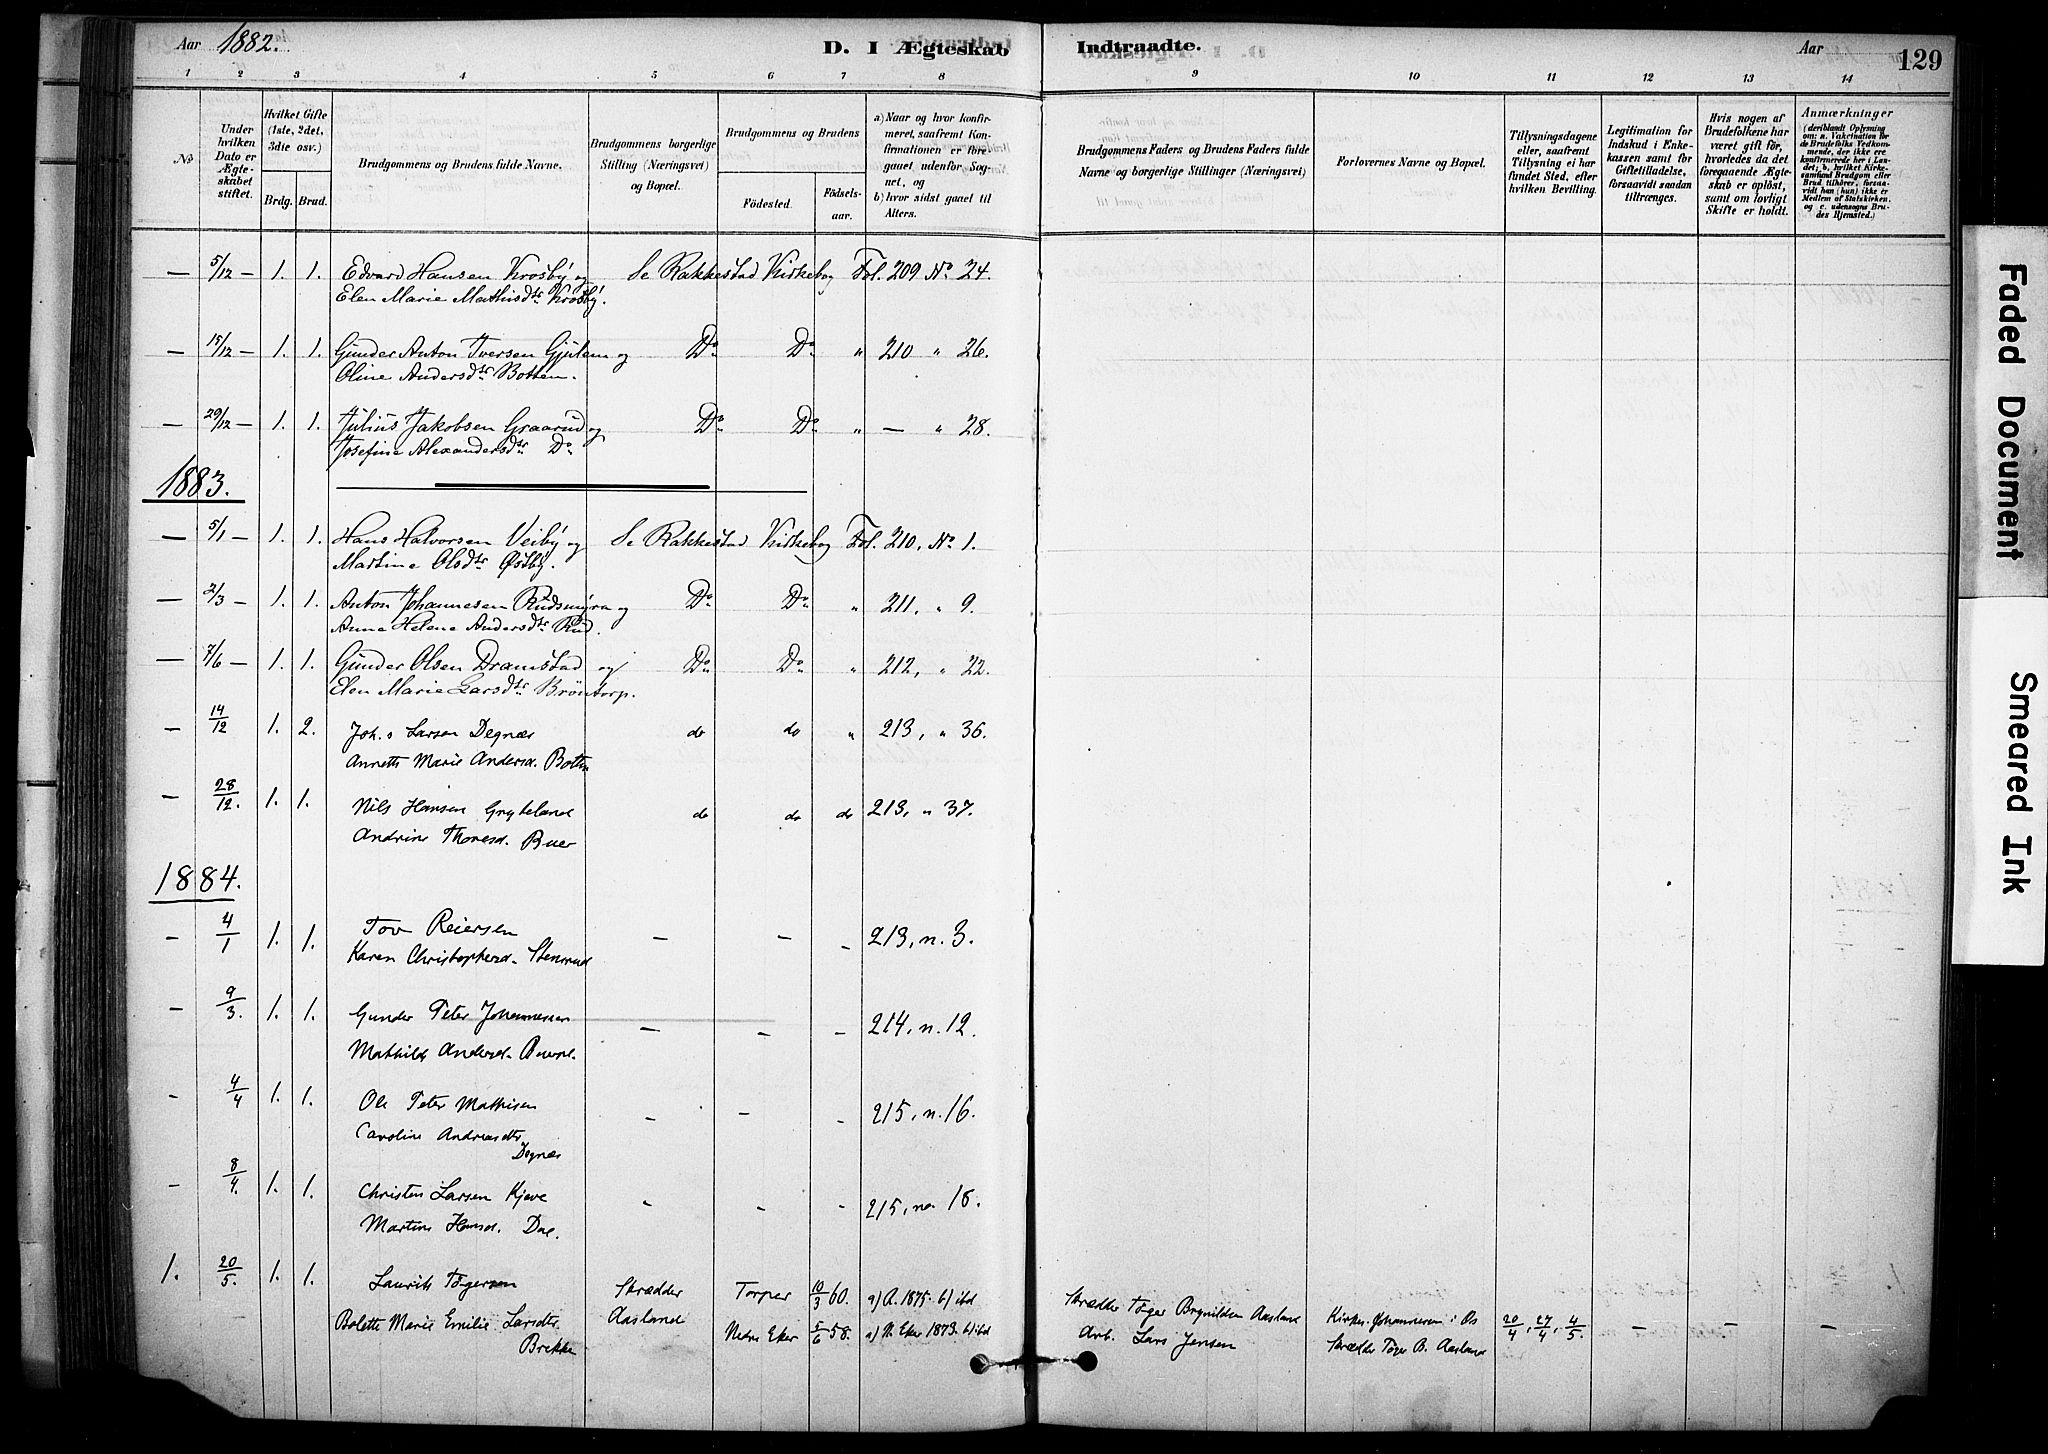 Aar 1882. D. I Ægteskab Indtraadte. Aar 129
1 2 3 4 5 6 7 8 9 10 11 12 13 14
No
Under hvilken Dato er Ægteskabet stiftet.
Hvilket Gifte (1ste, 2det, 3die osv.)
Brdg. Brud.
Brudgommens og Brudens fulde Navne.
Brudgommens borgerlige Stilling (Næringsvei) og Bopæl.
Brudgommens og Brudens
Födested. Födselsaar.
a) Naar og hvor konfirmeret, saafremt Konfirmationen er foregaaet udenför Sognet, og
b) hvor sidst gaaet til Alters.
Brudgommens Faders og Brudens Faders fulde Navne og borgerlige Stillinger (Næringsvei)
Forlovernes Navne og Bopæl.
Tillysningsdagene eller, saafremt Tillysning ei har fundet Sted, efter hvilken Bevilling.
Legitimation for Indskud i Enkekassen samt for Giftetilladelse, forsaavidt saadan tiltrænges.
Hvis nogen af Brudefolkene har været gift för, hvorledes da det foregaaende Ægteskab er oplöst, samt om lovligt Skifte er holdt.
Anmærkninger
(deriblandt Oplysning om: a. Vakcination for de Brudefolks Vedkommende, der ikke ere konfirmerede her i Landet; b. hvilket Kirkesamfund Brudgom eller Brud tilhörer, forsaavidt han (hun) ikke er Medlem af Statskirken, og c. udensogns Brudes Hjemsted.)
— 5/12 — 1. 1. Edvard Hansen Krosby og Se Rakkestad Kirkebog Fol. 209 No 24.
Elen Marie Mathisdtr Krosby.
— 15/12 — 1. 1. Gunder Anton Iversen Gjulem og Do Do " 210 " 26.
Oline Andersdtr Botten.
— 29/12 — 1. 1. Julius Jakobsen Graarud og Do Do " — " 28.
Josefine Alexandersdtr Do
1883.
— 5/1 — 1. 1. Hans Halvorsen Veiby og Se Rakkestad Kirkebog Fol. 210, No 1.
Martine Olsdtr Østby.
— 2/3 — 1. 1. Anton Johannesen Rudsmyra og Do Do " 211, " 9.
Anne Helene Andersdtr Rud.
— 7/6 — 1. 1. Gunder Olsen Dramstad og Do Do " 212, " 22.
Elen Marie Larsdtr Bröntorp.
— 14/12 1. 2. Joh.s Larsen Degnæs do do " 213, " 36.
Annette Marie Andersd. Botten
— 28/12. 1. 1. Nils Hansen Gryteland do do do 213, " 37.
Andrine Thoresd. Buer
1884.
— 4/1 1. 1. Tov Reiersen — — — 213, n. 3.
Karen Christophersd. Stensrud
— 9/3. 1. 1. Gunder Peter Johannessen — — — 214, n. 12.
Mathilde Andersd.
— 4/4 1. 1. Ole Peter Mathisen — — — 215, n. 16.
Caroline Andreasdtr
Degnæs
— 8/4. 1. 1. Christen Larsen Kjeve - - - 215, no. 18.
Martine Hansd. Dal.
1. 20/5. 1. 1. Laurits Tögersen Skrædder Torper 10/3 60. a) R. 1875. b) ibd Skrædder Töger Brynildsen Aasland Kirkes. Johannesen i Os 20/4, 27/4, 4/5. — — —
Bolette Marie Emilie Larsdtr Aasland Nedre Eker 5/6 58. a) N. Eker 1873. b) ibd Arb. Lars Jensen Skrædder Töger B. Aasland
Brekke
Faded Document
Smeared Ink